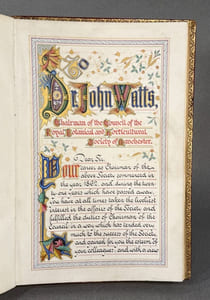 To
Dr. John Watts,
Chairman of the Council of the
Royal Botanical and Horticultural
Society of Manchester.
Dear Sir,
Your career as Chairman of the
above Society commenced in
the year 1867, and during the
one years which have passed away,
You have at all times taken the liveliest
interest in the affairs of the Society, and
fulfilled the duties of Chairman of the
Council in a way which has tended very
much to the success of the Society,
and earned for you the esteem of
your colleagues; and with a view